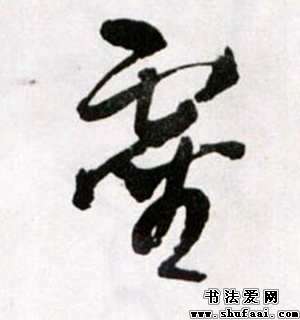 靈
书法爱网
www.shufaai.com